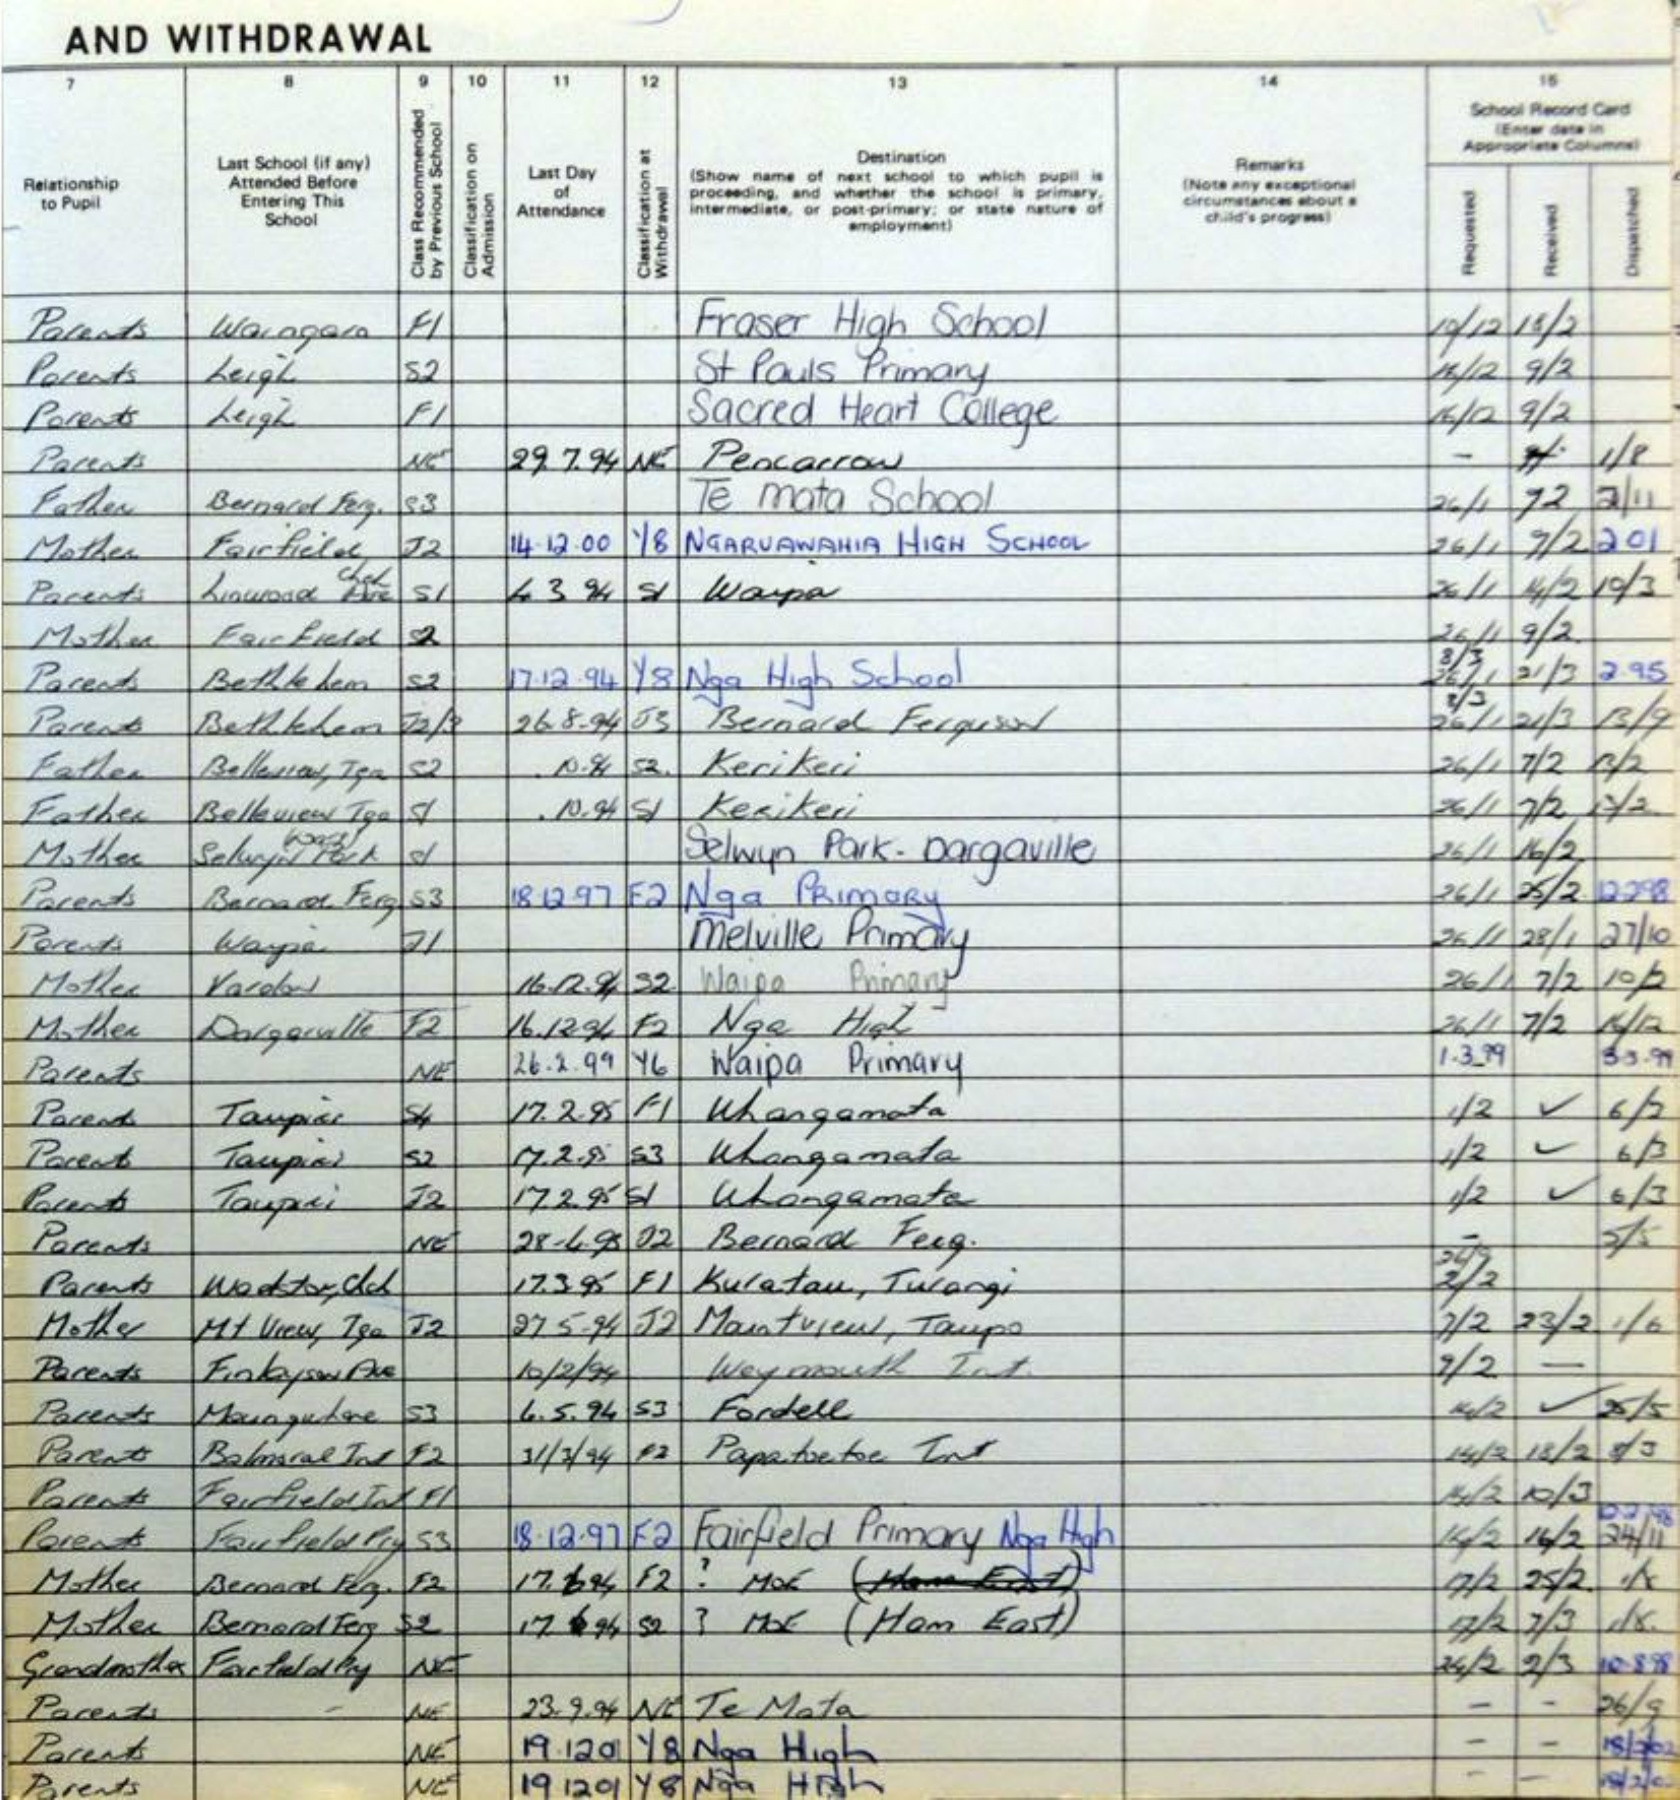 AND WITHDRAWAL
7 8 9 10 11 12 13 14 15
Relationship to Pupil
Last School (if any) Attended Before Entering This School
Class Recommended by Previous School
Classification on Admission
Last Day of Attendance
Classification at Withdrawal
Destination
(Show name of next school to which pupil is proceeding, and whether the school is primary, intermediate, or post-primary; or state nature of employment)
Remarks
(Note any exceptional circumstances about a child's progress)
School Record Card
(Enter date in Appropriate Columns)
Requested Received Dispatched
Parents F1 Fraser High School
Parents Leigh S2 St Pauls Primary 9/2
Parents Leigh F1 Sacred Heart College 9/2
Parents NE 29.7.94 NE Pencarrow - 1/8
Father Bernard Ferg. S3 Te Mata School 26/1
Mother Fairfield J2 14.12.00 Y8 NGARUAWAHIA HIGH SCHOOL 26/1 9/2 2 01
Parents Linwood S1 S1 Waipa 26/1 14/2 10/3
Mother Fairfield S2 26/1 9/2
Parents Bethlehem S2 17.12.94 Y8 Nga High School 8/3 26/1 21/3 2.95
Parents Bethlehem J2/3 26.8.94 J3 Bernard Ferguson 8/3 26/1 21/3 13/9
Father S2 10.94 S2. Kerikeri 26/1 7/2
Father S1 .10.94 S1 Kerikeri 26/1 7/2
Mother Selwyn Park S1 Selwyn Park - Dargaville 26/1 16/2
Parents Bernard Ferg S3 18.12.97 F2 Nga PRIMARY 26/1 25/2 12.2.98
Parents Waipa J1 Melville Primary 26/1 28/1 27/10
Mother Vardon 16.12.94 S2 Waipa Primary 26/1 7/2 10/2
Mother Dargaville F2 16.12.94 F2 Nga High 26/1 7/2
Parents NE 26.2.99 Y6 Waipa Primary 1.3.99 3.3.99
Parents Taupiri S4 17.2.95 F1 Whangamata 1/2 ✓
Parent Taupiri S2 17.2.95 S3 Whangamata 1/2 ✓ 6/3
Parents Taupiri J2 17.2.95 S1 Whangamata 1/2 ✓ 6/3
Parents NE J2 Bernard Ferg. - 5/5
Parents 17.3.95 F1 Kuratau, Turangi 2/2
Mother Mt View, Tga J2 27 5.94 J2 Mountview, Taupo 7/2 23/2 1/6
Parents Finlayson Ave 10/2/94 Weymouth Int. 9/2 —
Parents S3 6.5.94 S3 Fordell 14/2 ✓ 25/5
Parents Balmoral Int F2 31/3/94 F2 Papatoetoe Int 14/2 18/2 8/3
Parents Fairfield Int F1 14/2 10/3
Parents Fairfield Pry S3 18.12.97 F2 Fairfield Primary Nga High 14/2 16/2 24/11
Mother Bernard Ferg. F2 F2 ? MOE (Ham East) 17/2 25/2
Mother Bernard Ferg S2 S2 ? MOE (Ham East) 17/2 7/3
Grandmother Fairfield Pry NE 24/2 2/3 10.8.98
Parents - NE 23.9.94 NE Te Mata - - 26/9
Parents NE 19.1201 Y8 Nga High - -
Parents NE 19 1201 Y8 Nga High - —